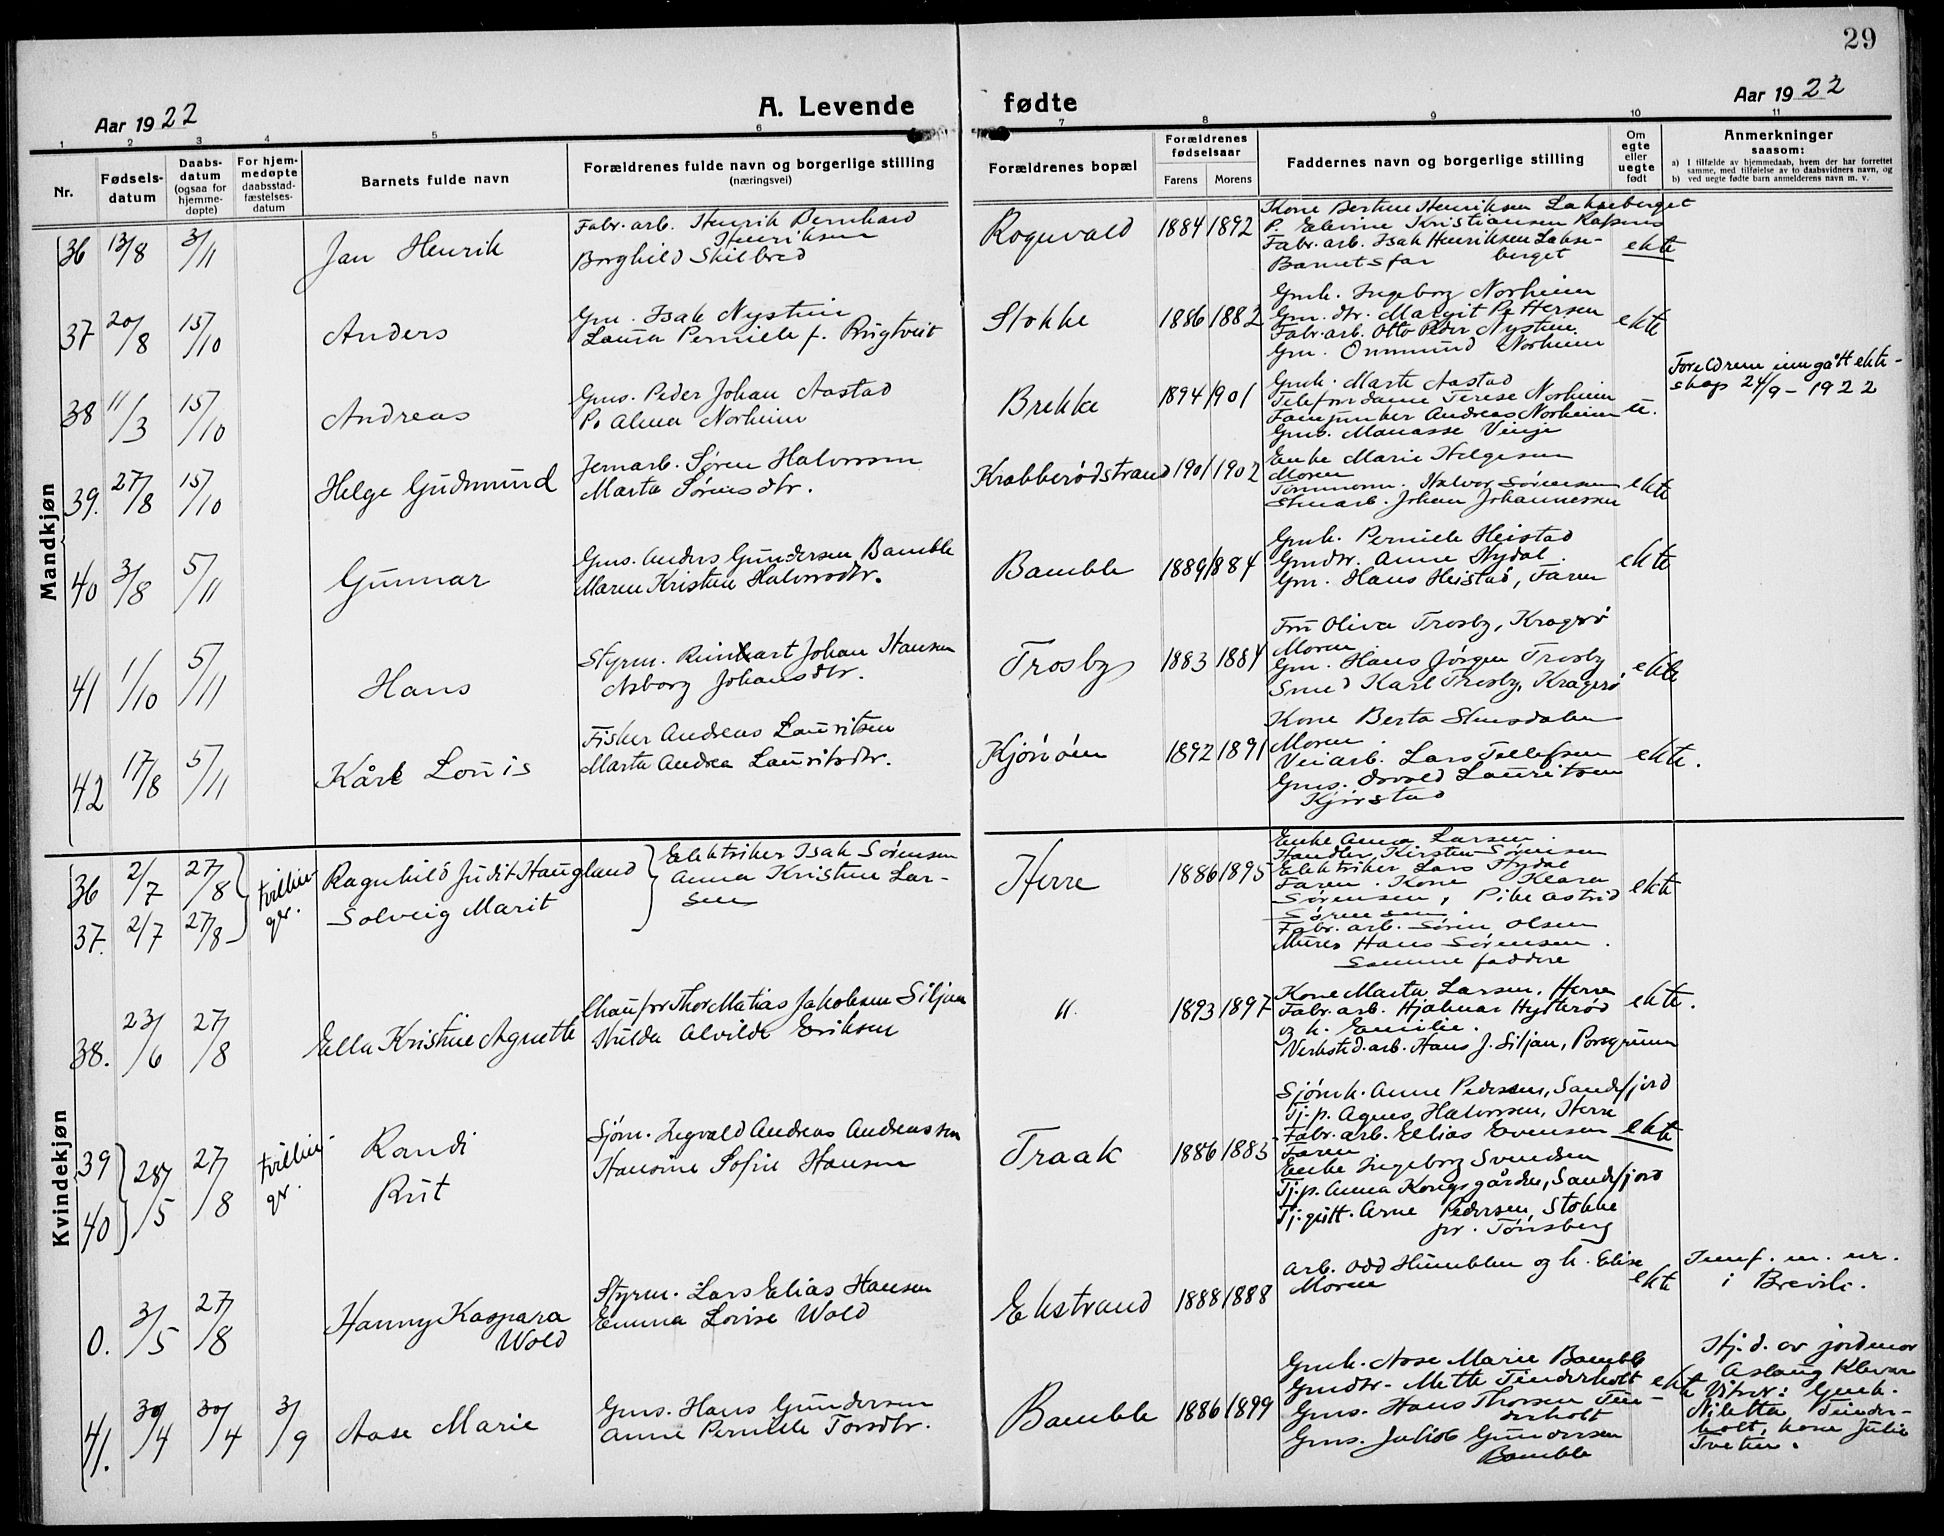 29
Aar 1922
A. Levende fødte
Aar 1922
1 2 3 4 5 6 7 8 9 10 11
Nr.
Fødsels-
datum
Daabs-
datum
(ogsaa for
hjemme-
døpte)
For hjem-
medøpte
daabsstad-
fæstelses-
datum
Barnets fulde navn
Forældrenes fulde navn og borgerlige stilling
(næringsvei)
Forældrenes bopæl
Forældrenes
fødselsaar
Farens Morens
Faddernes navn og borgerlige stilling
Om
egte
eller
uegte
født
Anmerkninger
saasom:
a) I tilfælde av hjemmedaab, hvem der har forrettet
samme, med tilføielse av to daabsvidners navn, og
b) ved uegte fødte barn anmelderens navn m. v.
Mandkjøn
36 13/8 3/11
Jan Henrik
Fabr. arb. Henrik Bernhard
Henriksen
Borghild Skilbred
Rognvald
1884 1892
Kone Bertine Henriksen Lakseberget
P. Elvine Kristiansen
Fabr. arb. Isak Henriksen Lakse-
berget
Barnets far
ekte
37 20/8 15/10
Anders
Gm. Isak Nystein
Laura Pernille f. Rugtveit
Stokke
1886 1882
Gmk. Ingeborg Norheim
Gm. dtr. Margit Pettersen
Fabr. arb. Otto Peder Nystein
Gm. Ommund Norheim
ekte
38 11/3 15/10
Andreas
Gms. Peder Johan Aastad
P. Alma Norheim
Brekke
1894 1901
Gmk. Marte Aastad
Telefondame Terese Norheim
Andreas Norheim
Gms. Manasse Vinje
u.
Foreldrene inngått ekte-
skap 24/9 - 1922
39. 27/8 15/10
Helge Gudmund
Jernarb. Søren Halvorsen
Marta Sørensdtr.
Krabberødstrand
1901 1902
Enke Marie Helgesen
Moren
Tømmerm. Halvor Sørensen
Stenarb. Johan Johannessen
ekte
40 3/8 5/11
Gunnar
Gms. Anders Gundersen Bamble
Maren Kristine Halvorsdtr.
Bamble
1889 1884
Gmk. Pernille Heistad
Gmdtr. Anne Hydal.
Gm. Hans Heistad, Faren
ekte
41 1/10 5/11
Hans
Styrm. Reinhart Johan Hansen
Asborg Johansdtr.
Trosby
1883 1884
Fru Oliva Trosby, Kragerø
Moren.
Gm. Hans Jørgen Trosby
Smed Karl Trosby, Kragerø
ekte
42 17/8 5/11
Kåre Louis
Fisker Andreas Lauritsen
Marta Andrea Lauritsdtr.
Kjønøen
1892 1891
Kone Berta Stensdalen
Moren.
Veiarb. Lars Tellefsen
Gms. Osvald Lauritsen
Kjørstad
ekte.
Kvindekjøn
36 2/7 27/8
37. 2/7 27/8
tvillin-
ger.
Ragnhild Judit Haugland
Solveig Marit
Elektriker Isak Sørensen
Anna Kristine Lar-
sen
Herre
1886 1895
Enke Anna Larsen.
Handler, Kirsten Sørensen
Elektriker Lars Hydal
Faren. Kone Klara
Sørensen, Pike Astrid
Sørensen.
Fabr. arb. Søren Olsen
Murer Hans Sørensen.
Samme faddere
ekte
38. 23/6 27/8
Ella Kristine Agnette
Chaufør Thor Matias Jakobsen Siljan
Hulda Alvilde Eriksen
"
1893 1897
Kone Marta Larsen, Herre
Fabr. arb. Hjalmar Hytterød
og k. Emilie.
Verksted.arb. Hans J. Siljan, Porsgrunn
ekte.
39
40
28/5 27/8
tvillin-
ger.
Randi
Rut
Sjøm. Ingvald Andreas Andreassen
Hansine Sofie Hansen
Traak
1886 1885
Sjømk. Anne Pedersen, Sandefjord
Tj. p. Agnes Halvorsen, Herre
Fabr. arb. Elias Evensen
Faren
Enke Ingeborg Svendsen
Tj. p. Anna Kongsgården, Sandefjord
Tj. gutt. Arne Pedersen, Stokke
pr. Tønsberg
ekte
0. 3/5 27/8
Hanny Kaspara
Wold
Styrm. Lars Elias Hansen
Emma Lovise Wold
Ekstrand
1888 1888
Arb. Odd Humblen og h. Elise
Moren
ekte
Innf. m. nr.
i Brevik.
41. 30/4 30/4 3/9
Aase Marie
Gms. Hans Gundersen
Anne Pernille Torsdtr.
Bamble
1886 1899
Gmk. Aase Marie Bamble
Gmdtr. Mette Tinderholt
Gms. Hans Thorsen Tin-
derholt
Gms. Jakob Gundersen
Bamble
ekte
Hj. d. av jordmor
Aslaug Klevar
Vitner: Gmk.
Niletta Tinder-
holt, kone Julie
Tveten.